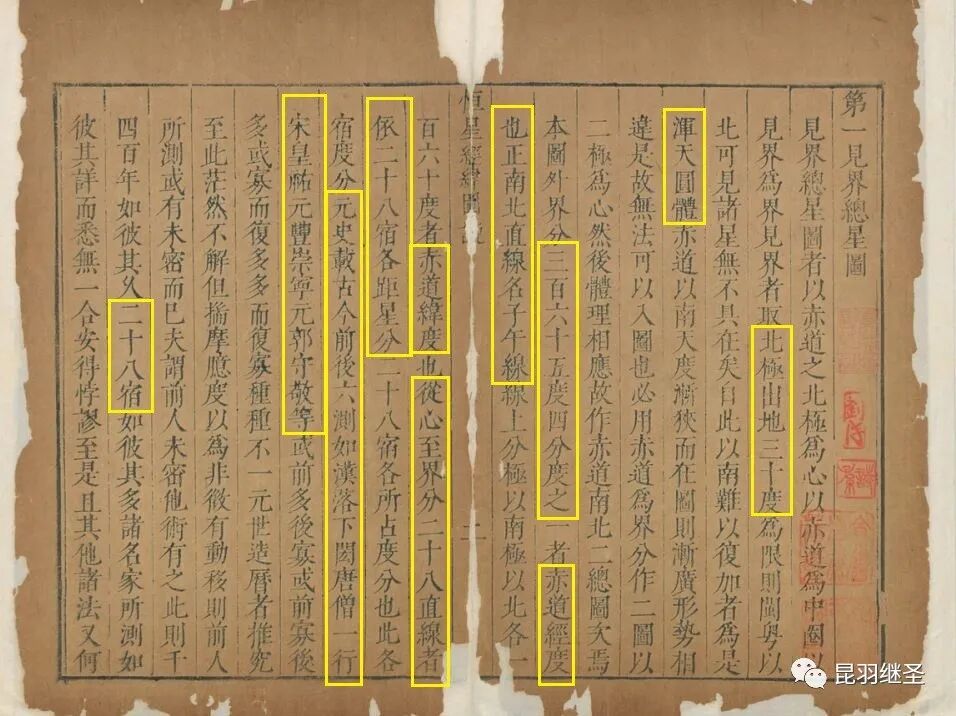 第一見界總星圖
見界總星圖者以赤道之北極為心以赤道為中圈以
見界為界見界者取北極出地三十度為限則閩粵以
北可見諸星無不具在矣自此以南難以復加者為是
渾天圓體赤道以南天度漸狹而在圖則漸廣形勢相
違是故無法可以入圖也必用赤道為界分作二圖以
二極為心然後體理相應故作赤道南北二總圖次焉
本圖外界分三百六十五度四分度之一者赤道經度
也正南北直線名子午線線上分極以南極以北各一
恒星經緯圖說
二
百六十度者赤道緯度也從心至界分二十八直線者
依二十八宿各距星分二十八宿各所占度分也此各
宿度分元史載古今前後六測如漢落下閎唐僧一行
宋皇祐元豐崇寧元郭守敬等或前多後寡或前寡後
多或寡而復多多而復寡種種不一元世造曆者推究
至此茫然不解但揣摩臆度以為非微有動移則前人
所測或有未密而已夫謂前人未密他術有之此則千
四百年如彼其久二十八宿如彼其多諸名家所測如
彼其詳而悉無一合安得悖謬至是且其他諸法又何
昆羽继圣